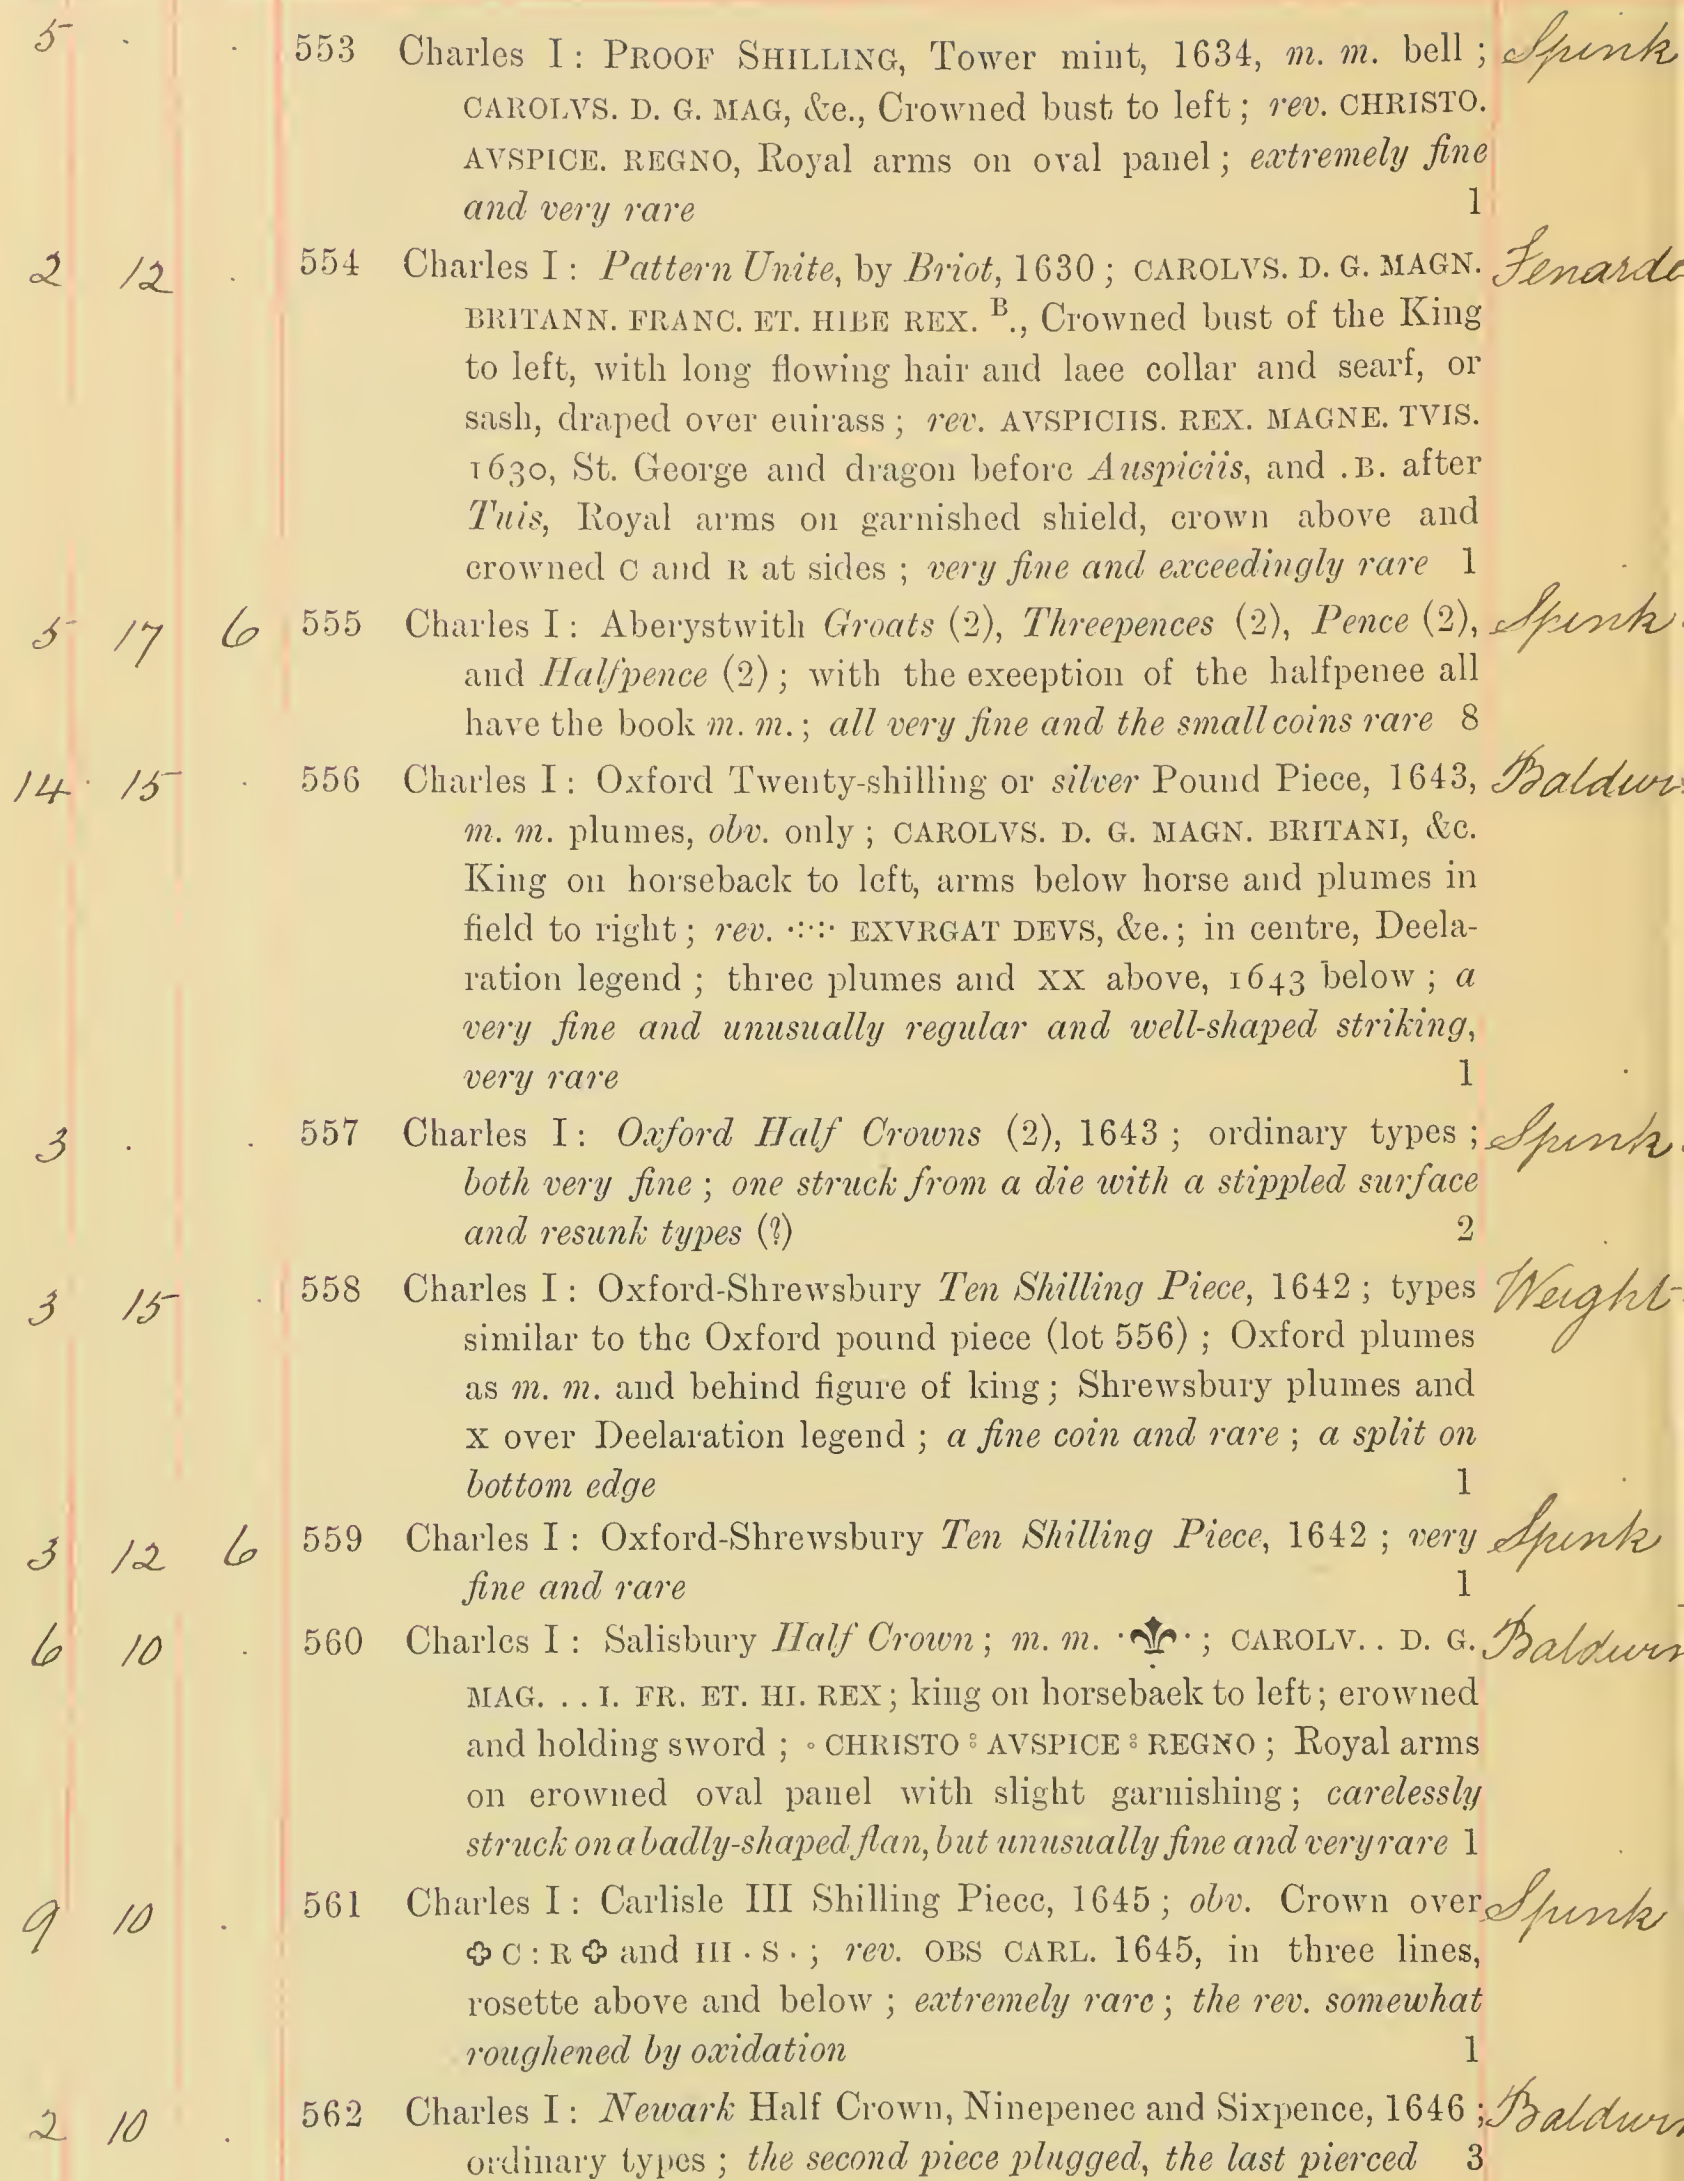 5 . . 553 Charles I: PROOF SHILLING, Tower mint, 1634, m. m. bell; Spink
CAROLVS. D. G. MAG, &c., Crowned bust to left; rev. CHRISTO.
AVSPICE. REGNO, Royal arms on oval panel; extremely fine
and very rare 1
2 12 . 554 Charles I: Pattern Unite, by Briot, 1630; CAROLVS. D. G. MAGN.
BRITANN. FRANC. ET. HIBE REX. B., Crowned bust of the King
to left, with long flowing hair and lace collar and scarf, or
sash, draped over cuirass; rev. AVSPICIIS. REX. MAGNE. TVIS.
1630, St. George and dragon before Auspiciis, and .B. after
Tuis, Royal arms on garnished shield, crown above and
crowned C and R at sides; very fine and exceedingly rare 1
5 17 6 555 Charles I: Aberystwith Groats (2), Threepences (2), Pence (2), Spink
and Halfpence (2); with the exception of the halfpence all
have the book m. m.; all very fine and the small coins rare 8
14 15 . 556 Charles I: Oxford Twenty-shilling or silver Pound Piece, 1643, Baldwin
m. m. plumes, obv. only; CAROLVS. D. G. MAGN. BRITANI, &c.
King on horseback to left, arms below horse and plumes in
field to right; rev. ·:·:· EXVRGAT DEVS, &c.; in centre, Decla-
ration legend; three plumes and XX above, 1643 below; a
very fine and unusually regular and well-shaped striking,
very rare 1
3 . . 557 Charles I: Oxford Half Crowns (2), 1643; ordinary types; Spink
both very fine; one struck from a die with a stippled surface
and resunk types (?) 2
3 15 . 558 Charles I: Oxford-Shrewsbury Ten Shilling Piece, 1642; types Weight
similar to the Oxford pound piece (lot 556); Oxford plumes
as m. m. and behind figure of king; Shrewsbury plumes and
X over Declaration legend; a fine coin and rare; a split on
bottom edge 1
3 12 6 559 Charles I: Oxford-Shrewsbury Ten Shilling Piece, 1642; very Spink
fine and rare 1
6 10 . 560 Charles I: Salisbury Half Crown; m. m. ·⚜·; CAROLV. . D. G. Baldwin
MAG. . . I. FR. ET. HI. REX; king on horseback to left; crowned
and holding sword; ∘ CHRISTO ⦂ AVSPICE ⦂ REGNO; Royal arms
on crowned oval panel with slight garnishing; carelessly
struck on a badly-shaped flan, but unusually fine and very rare 1
9 10 . 561 Charles I: Carlisle III Shilling Piece, 1645; obv. Crown over Spink
✤ C : R ✤ and III · S ·; rev. OBS CARL. 1645, in three lines,
rosette above and below; extremely rare; the rev. somewhat
roughened by oxidation 1
2 10 . 562 Charles I: Newark Half Crown, Ninepence and Sixpence, 1646; Baldwin
ordinary types; the second piece plugged, the last pierced 3